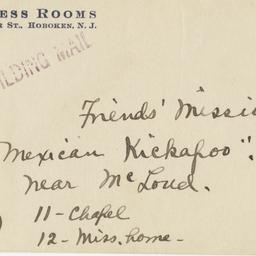 ess Rooms
r St., Hoboken, N. J.
ILDING MAIL
Friends' Missi
Mexican Kickapoo".
near McLoud.
11 - Chapel
12 - Miss. home -